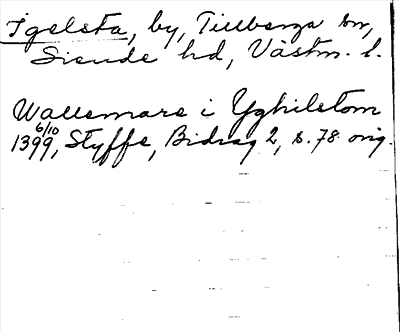 Igelsta, by, Tillberga sn,
Siende hd, Västm. l.
Wallemare i Yghilstom
6/10
1399, Styffe, Bidrag 2, s. 78 orig.